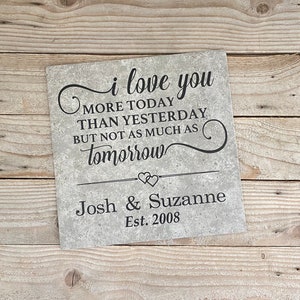 i love you
MORE TODAY
THAN YESTERDAY
BUT NOT AS MUCH AS
tomorrow
Josh & Suzanne
Est. 2008